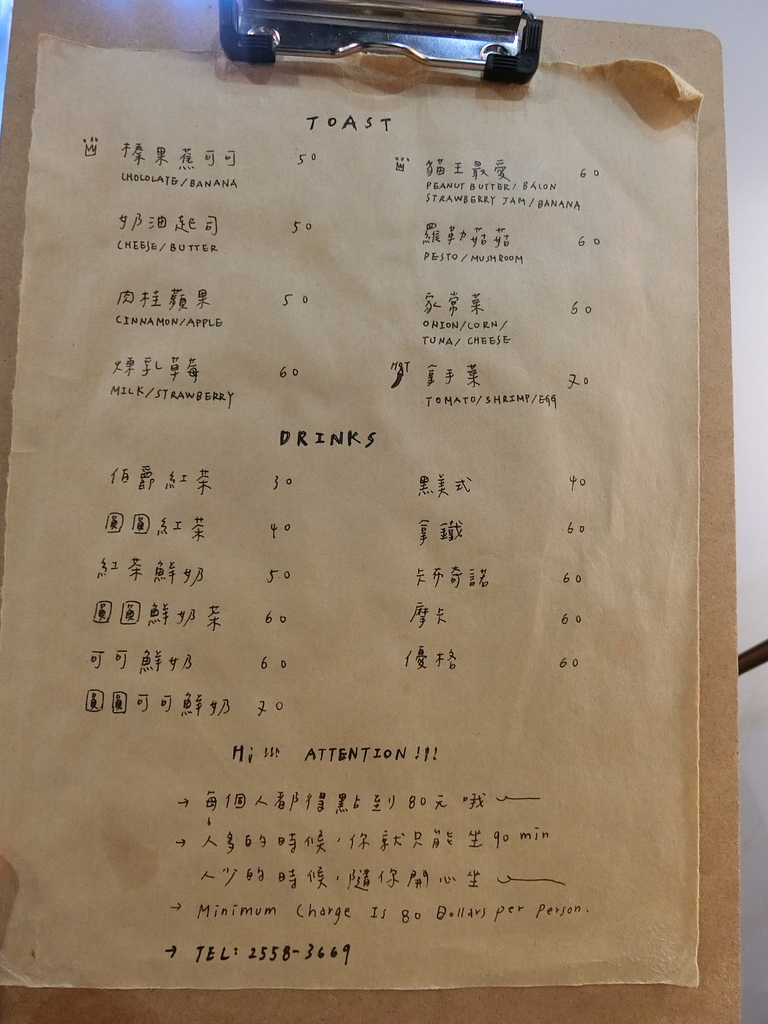 TOAST
榛果蕉可可 50
CHOCOLATE/BANANA
奶油起司 50
CHEESE/BUTTER
肉桂蘋果 50
CINNAMON/APPLE
煉乳草莓 60
MILK/STRAWBERRY
貓王最愛 60
PEANUT BUTTER/BACON
STRAWBERRY JAM/BANANA
羅勒菇菇 60
PESTO/MUSHROOM
家常菜 60
ONION/CORN/
TUNA/CHEESE
HOT 拿手菜 70
TOMATO/SHRIMP/EGG
DRINKS
伯爵紅茶 30
圓圓紅茶 40
紅茶鮮奶 50
圓圓鮮奶茶 60
可可鮮奶 60
圓圓可可鮮奶 70
黑美式 40
拿鐵 60
卡布奇諾 60
摩卡 60
優格 60
Hi!!! ATTENTION!!!
→ 每個人都得點到80元哦
→ 人多的時候，你就只能坐90 min
人少的時候，隨你開心坐
→ Minimum Charge Is 80 Dollars per Person.
→ TEL: 2558-3669